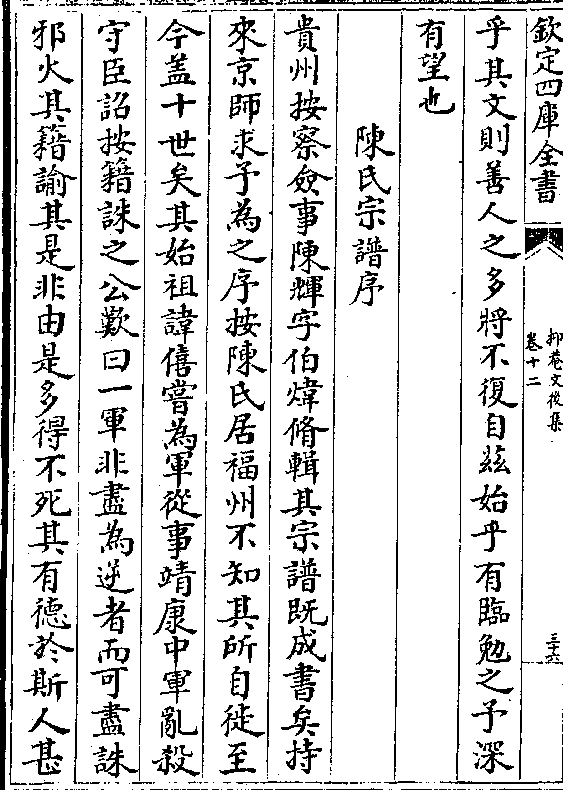 欽定四庫全書
抑菴文後集
卷十二
三十六
乎其文則善人之多將不復自兹始乎有臨勉之予深
有望也
陳氏宗譜序
貴州按察僉事陳輝字伯煒脩輯其宗譜既成書矣持
來京師求予為之序按陳氏居福州不知其所自徙至
今盖十世矣其始祖諱僖嘗為軍從事靖康中軍亂殺
守臣詔按籍誅之公歎曰一軍非盡為逆者而可盡誅
邪火其籍諭其是非由是多得不死其有德於斯人甚